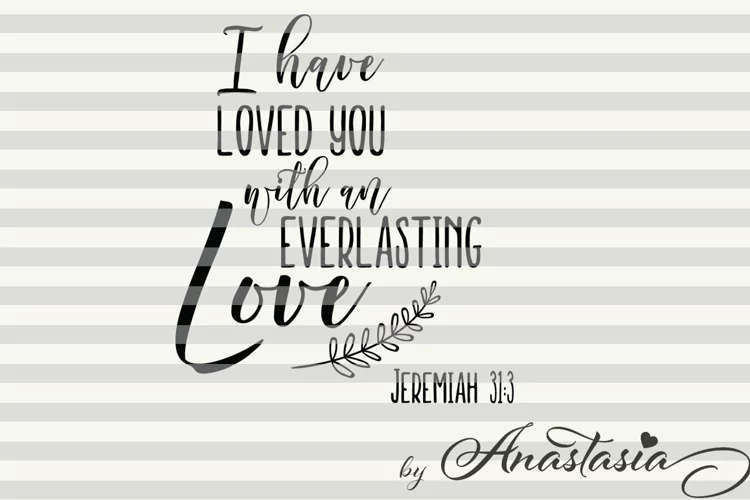 I have
LOVED YOU
with an
EVERLASTING
Love
JEREMIAH 31:3
by Anastasia